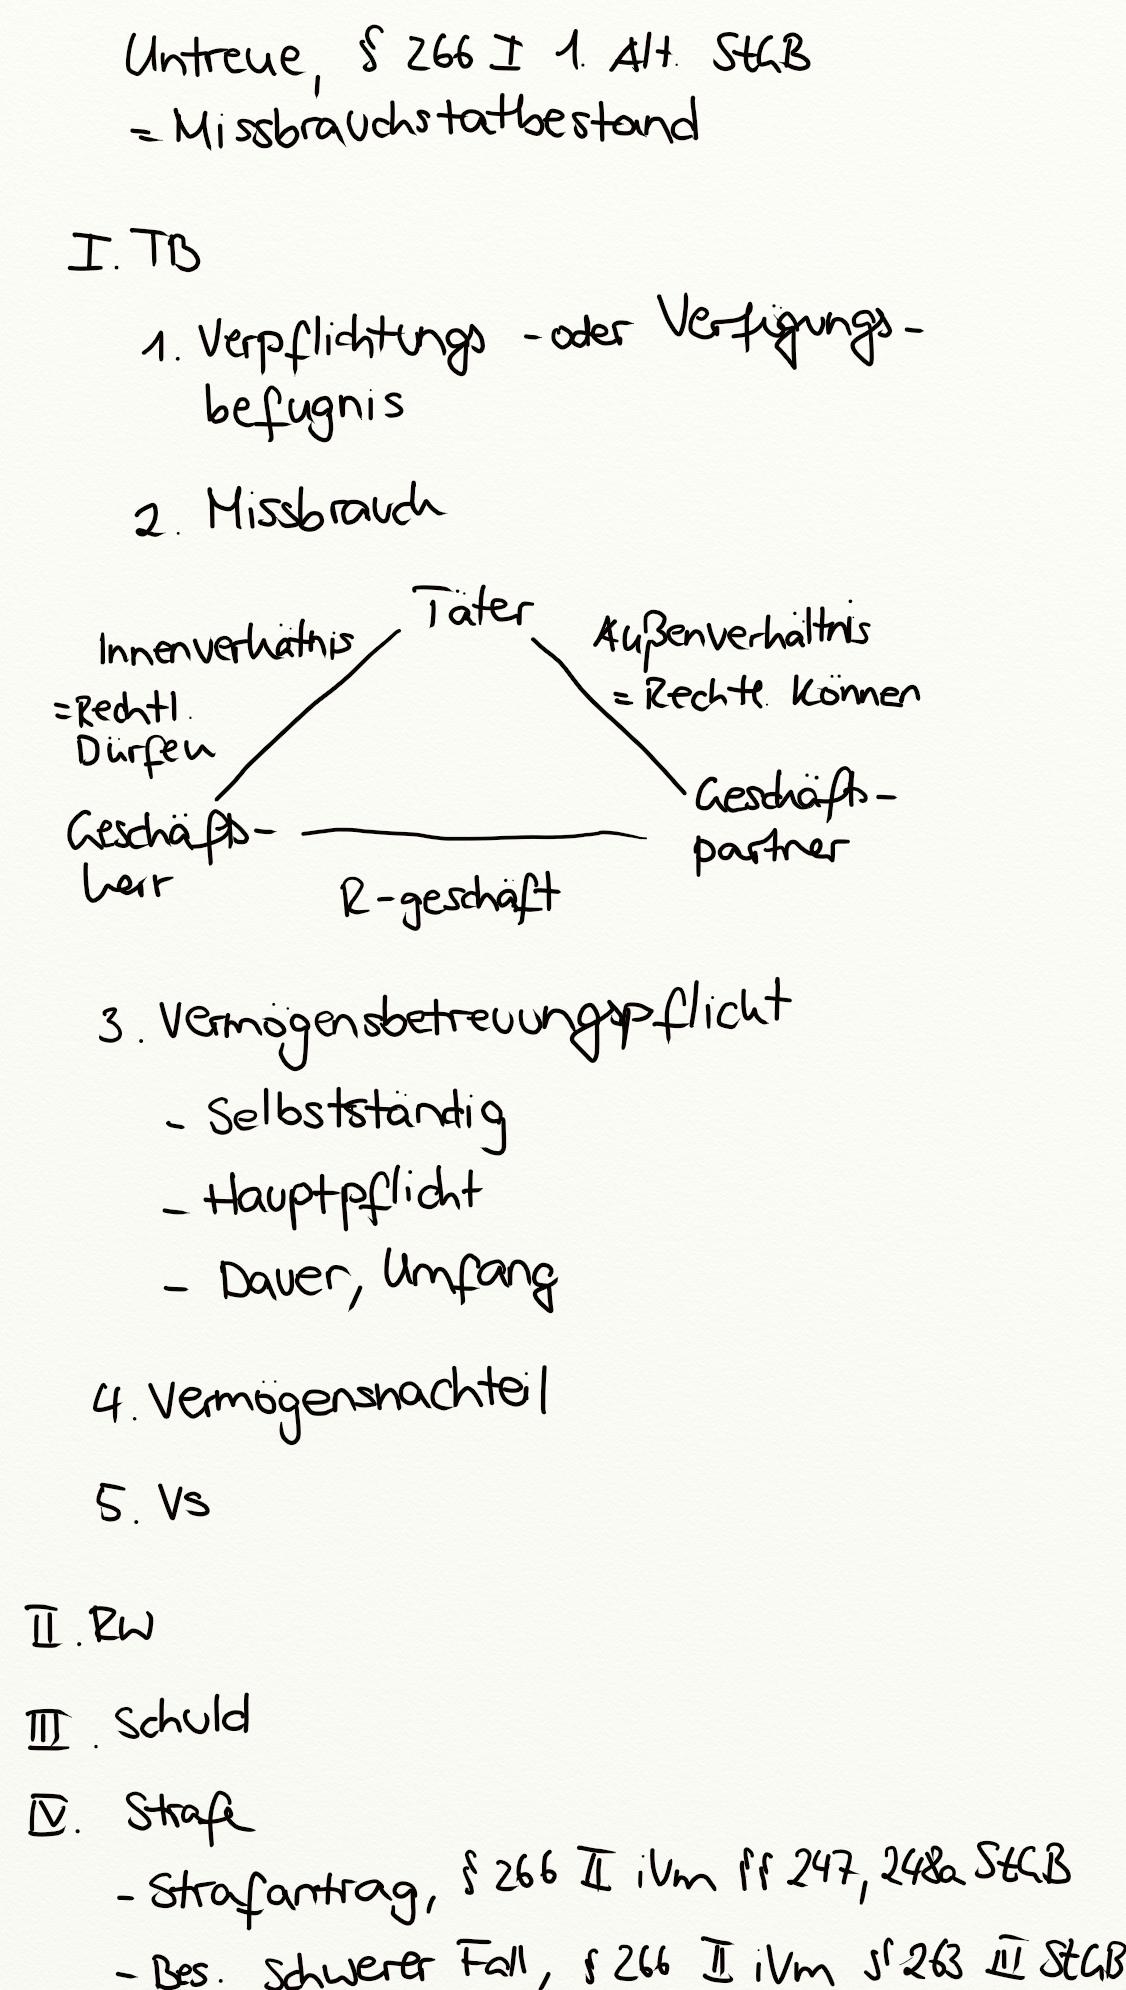 Untreue, § 266 I 1. Alt. StGB
= Missbrauchstatbestand
I. TB
1. Verpflichtungs - oder Verfügungs-
befugnis
2. Missbrauch
Täter
Innenverhältnis
Außenverhältnis
= Rechtl.
Dürfen
= Rechtl. Können
Geschäfts-
herr
Geschäfts-
partner
R-geschäft
3. Vermögensbetreuungspflicht
- Selbstständig
- Hauptpflicht
- Dauer, Umfang
4. Vermögensnachteil
5. Vs
II. RW
III. Schuld
IV. Strafe
- Strafantrag, § 266 II iVm §§ 247, 248a StGB
- Bes. schwerer Fall, § 266 II iVm § 263 III StGB